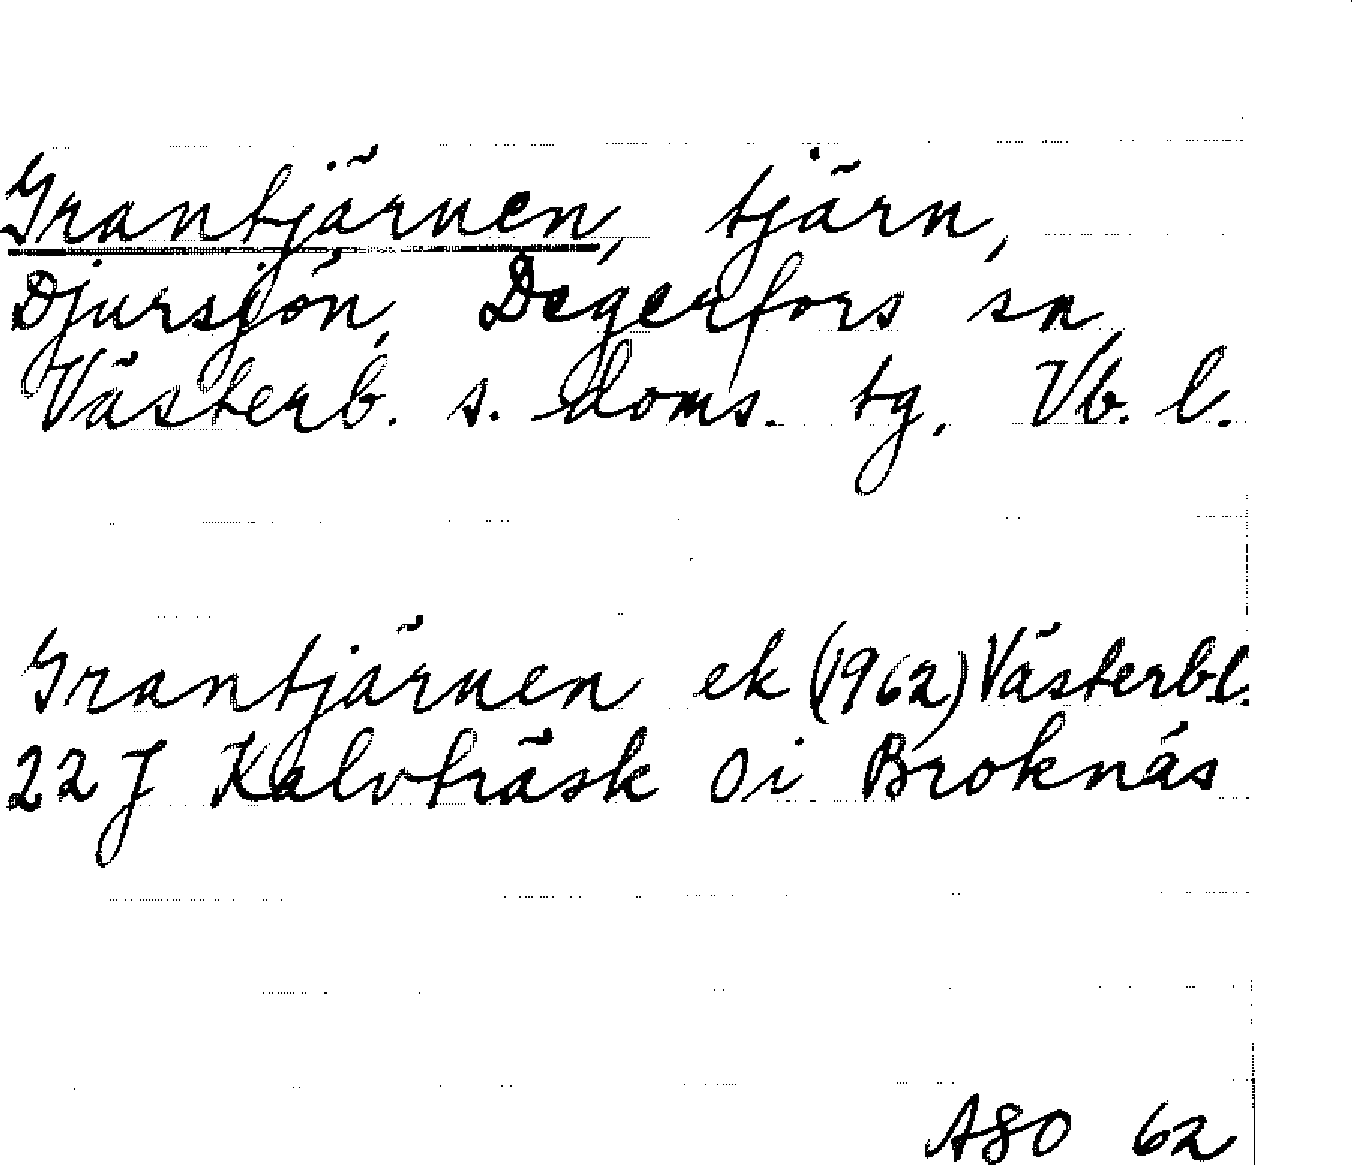 Grantjärnen, tjärn,
Djursjön, Degerfors sn
Västerb. s. doms. tg, Vb. l.
Grantjärnen ek (1962) Västerb l.
22 J Kalvträsk SV i Broknäs
ASO 62